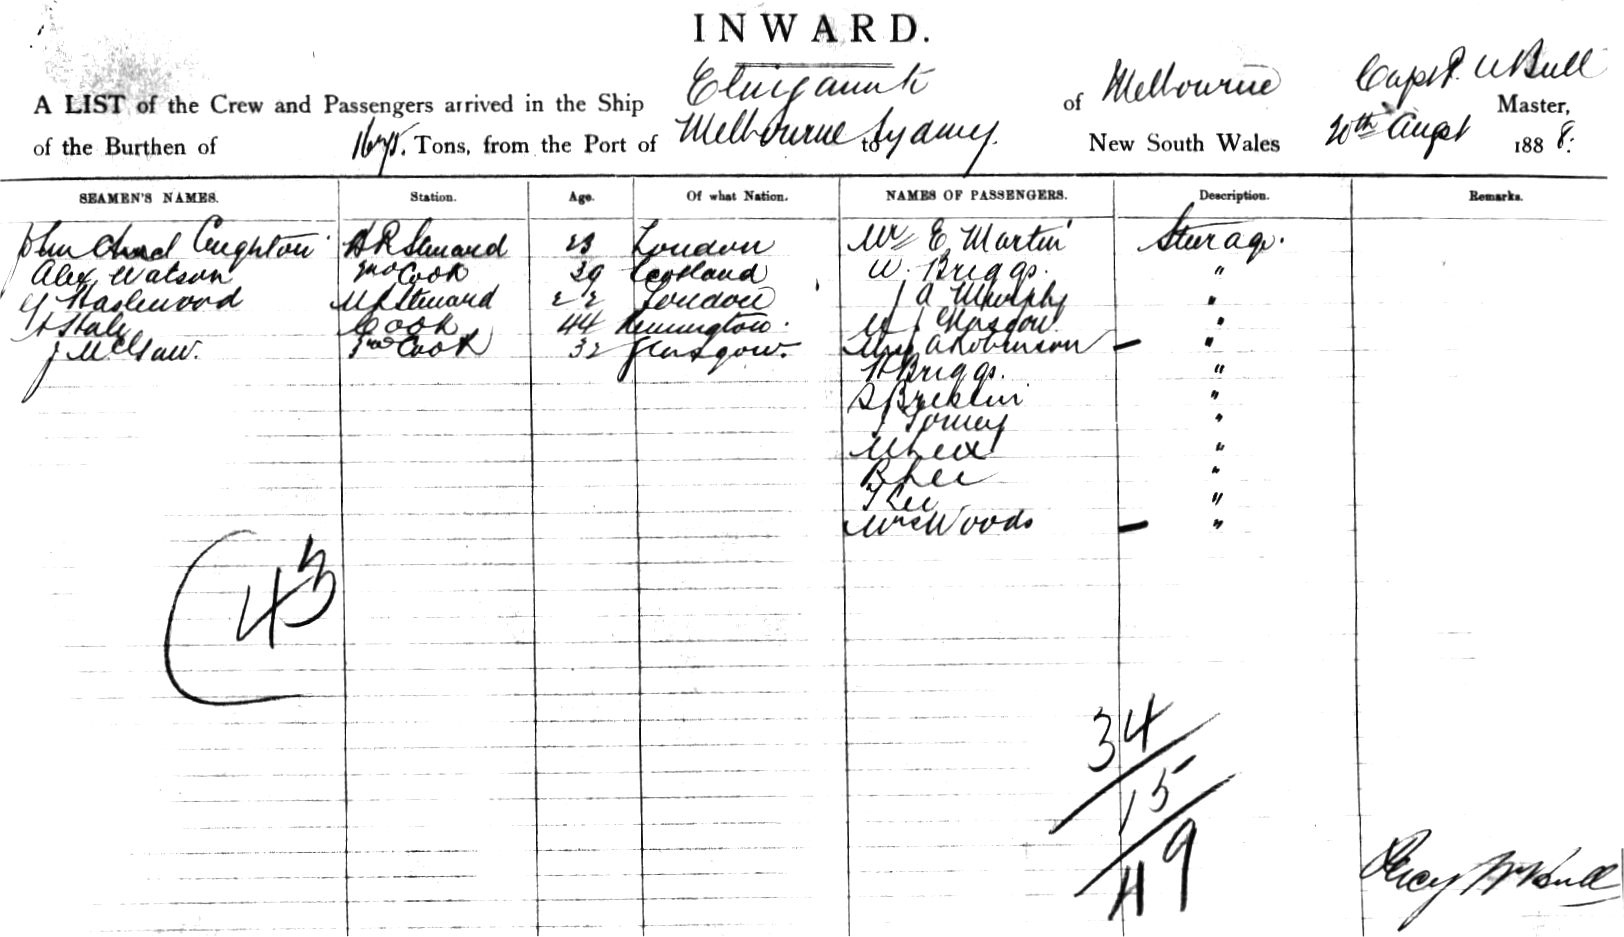 INWARD.
A LIST of the Crew and Passengers arrived in the Ship of Melbourne Capt P. W Bull Master,
of the Burthen of 1675. Tons, from the Port of Melbourne to Sydney. New South Wales 20th Augst 188 8.
SEAMEN'S NAMES. Station. Age. Of what Nation. NAMES OF PASSENGERS. Description. Remarks.
John Steward 23 London Mr E Martin Steerage.
Alex Watson 2nd Cook 39 Scotland W. Briggs. "
G Haslewood Steward 22 London J A Murphy "
H Cook 44 Kennington. J Glasgow. "
J 3rd Cook 32 Glasgow. A Robinson — "
H Briggs. "
"
J "
"
B Lee "
T Lee "
Mrs Woods — "
43
34
15
49
Percy W Bull